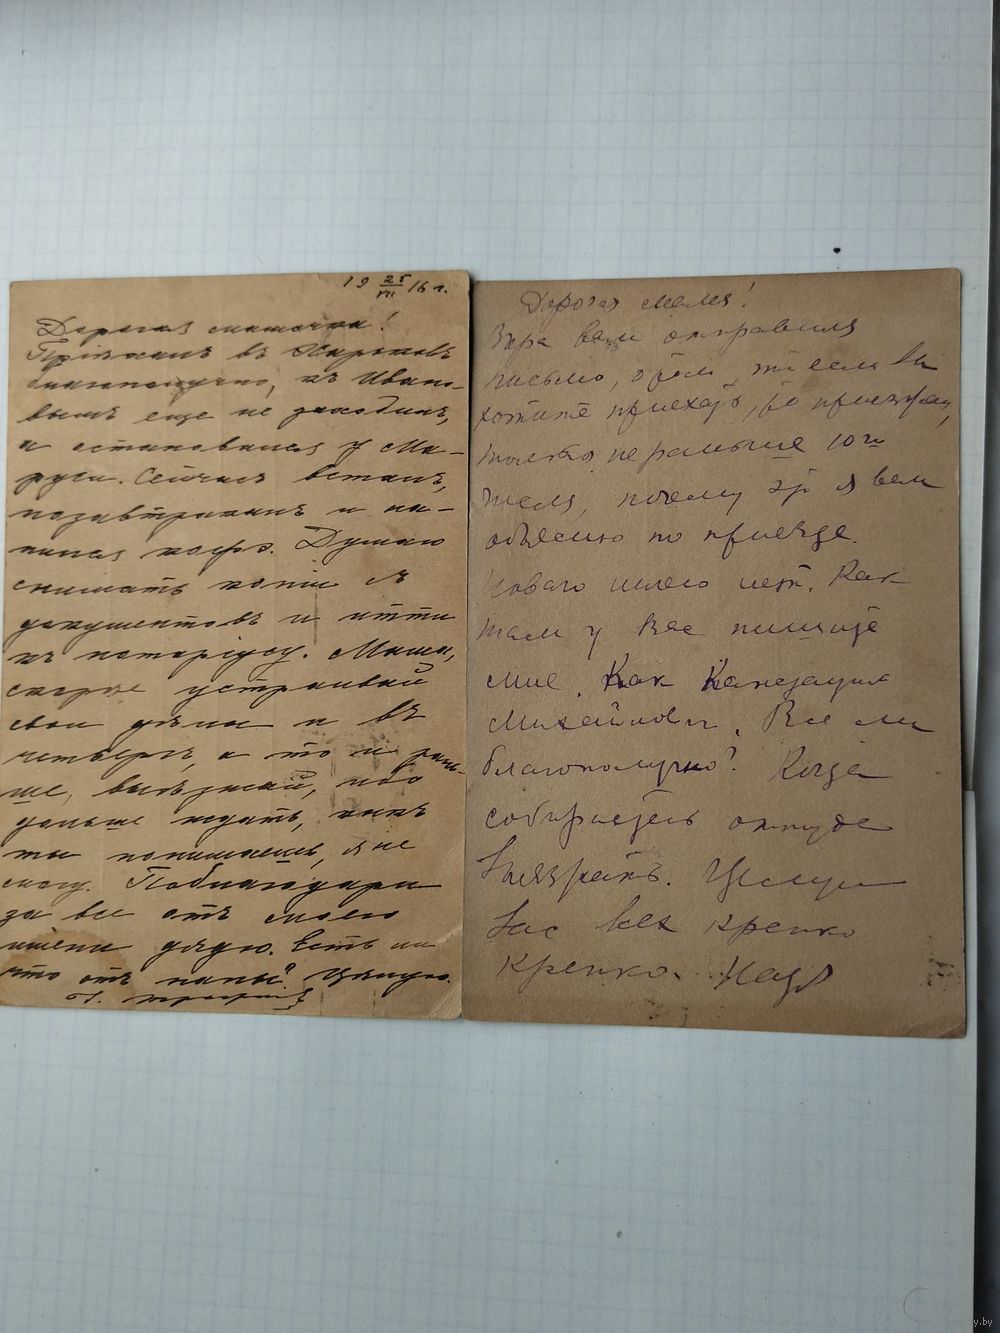 19 25/VII 16 г.
Дорогая мамочка!
Прiѣхалъ въ Харьковъ
благополучно, къ Ивано-
вымъ еще не заходилъ,
а остановился у Ма-
руси. Сейчасъ всталъ,
позавтракалъ и на-
пился кофэ. Думаю
снимать копiи съ
документовъ и итти
къ нотарiусу. Маша,
скорѣе устраивай
свои дѣла и въ
четвергъ, а то и рань-
ше, выѣзжай, ибо
дольше ждать, какъ
ты понимаешь, я не
могу. Поблагодари
за все отъ моего
имени дядю. Есть ли
что отъ папы? Цѣлую.
Дорогая мама!
Вчера вам отправила
письмо, о том, что если вы
хотите приехать, то приезжайте,
только не раньше 10го
июля, почему это я вам
объясню по приезде.
Нового ничего нет. Как
там у Вас пишите
мне. Как
Михайловна. Все ли
благополучно? Когда
собираетесь оттуда
выезжать. Целую
Вас всех крепко
крепко. Надя